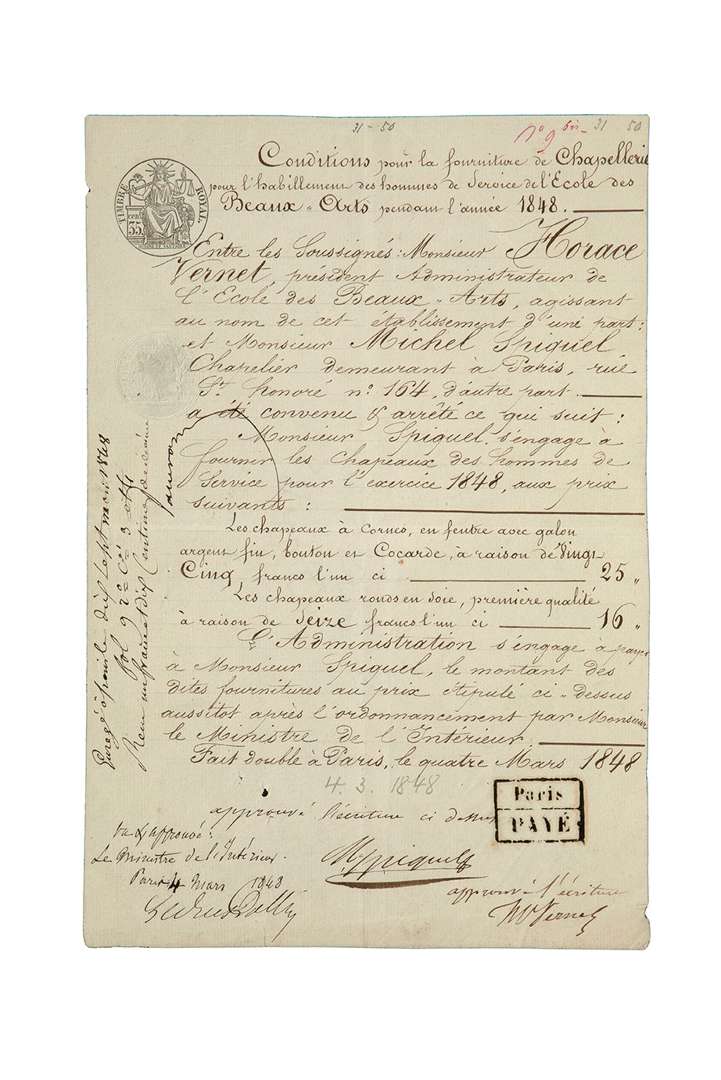 31-50
n° 9 bis - 31 50
Conditions pour la fourniture de Chapellerie
pour l'habillement des hommes de Service de l'Ecole des
Beaux-Arts pendant l'année 1848.
TIMBRE ROYAL
35
Entre les Soussignés: Monsieur Horace
Vernet, président Administrateur de
l'Ecole des Beaux-Arts, agissant
au nom de cet établissement d'une part:
et Monsieur Michel Spiquel
Chapelier demeurant à Paris, rue
St. honoré n° 164, d'autre part.
a été convenu & arrêté ce qui suit:
Monsieur Spiquel s'engage à
fournir les chapeaux des hommes de
Service pour l'exercice 1848, aux prix
suivants:
Les chapeaux à Cornes, en feutre avec galon
argent fin, bouton et Cocarde, à raison de Vingt
Cinq francs l'un ci 25 "
Les chapeaux ronds en Soie, première qualité
à raison de Seize francs l'un ci 16 "
L'Administration s'engage à payer
à Monsieur Spiquel, le montant des
dites fournitures au prix stipulé ci-dessus
aussitot après l'ordonnancement par Monsieur
le Ministre de l'Intérieur
Fait double à Paris, le quatre Mars 1848
4.3.1848
approuvé l'écriture ci dessus
Paris
PAYÉ
vu & approuvé:
Le Ministre de l'Intérieur.
Paris 4 Mars 1848
Ledru Rollin
MSpiquel
approuvé l'écriture
HVernet
Paris le dix sept mars 1848
Reçu un franc dix Centimes